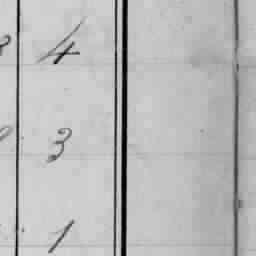 4
3
1